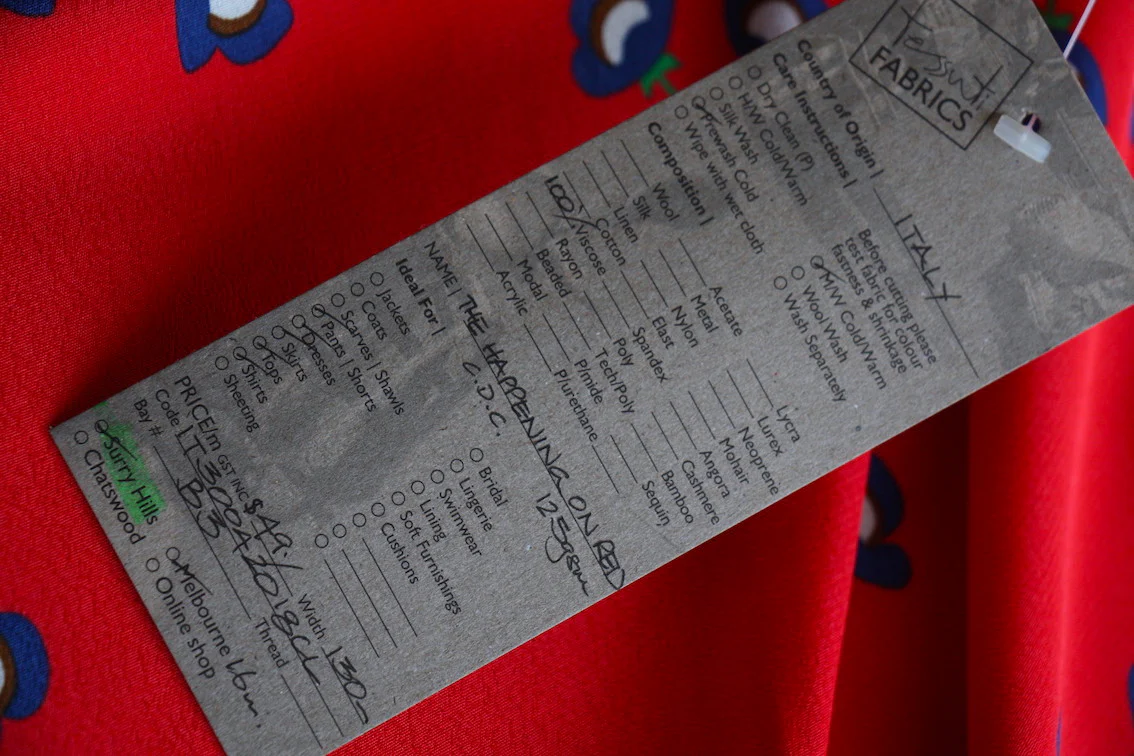 Tessuti
FABRICS
Country of Origin | ITALY
Care Instructions |
Before cutting please
test fabric for colour
fastness & shrinkage
Dry Clean (P)
H/W Cold/Warm
Silk Wash
Prewash Cold
Wipe with wet cloth
M/W Cold/Warm
Wool Wash
Wash Separately
Composition |
Wool
Silk
Linen
Cotton
100% Viscose
Rayon
Beaded
Modal
Acrylic
Acetate
Metal
Nylon
Elast
Spandex
Poly
Tech/Poly
P/mide
P/urethane
Lycra
Lurex
Neoprene
Mohair
Angora
Cashmere
Bamboo
Sequin
NAME | THE HAPPENING ON RED
C.D.C. 125gsm
Ideal For |
Jackets
Coats
Scarves | Shawls
Pants | Shorts
Dresses
Skirts
Tops
Shirts
Sheeting
Bridal
Lingerie
Swimwear
Lining
Soft Furnishings
Cushions
PRICE/m GST INC $49. Width 130
Code
Bay # B3 Thread
Surry Hills
Chatswood
Melbourne
Online shop